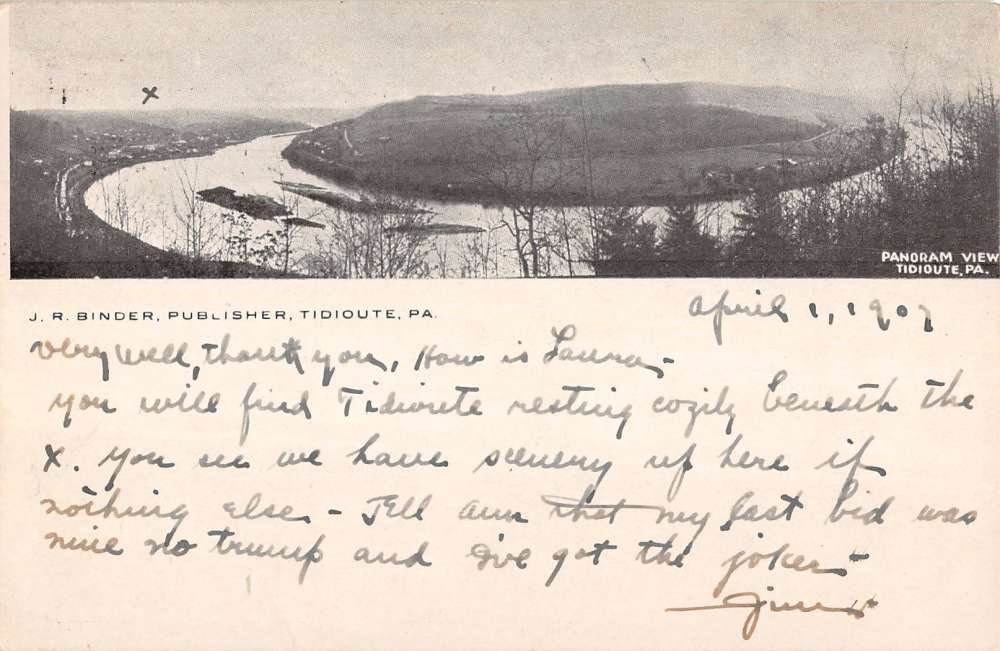 x
PANORAM VIEW
TIDIOUTE, PA.
J. R. BINDER, PUBLISHER, TIDIOUTE, PA.
April 1, 1907
very well, thank you, How is Laura -
you will find Tidioute resting cozily beneath the
x. You see we have scenery up here if
nothing else - Tell that my last bid was
nine no trump and I've got the joker -
Jim